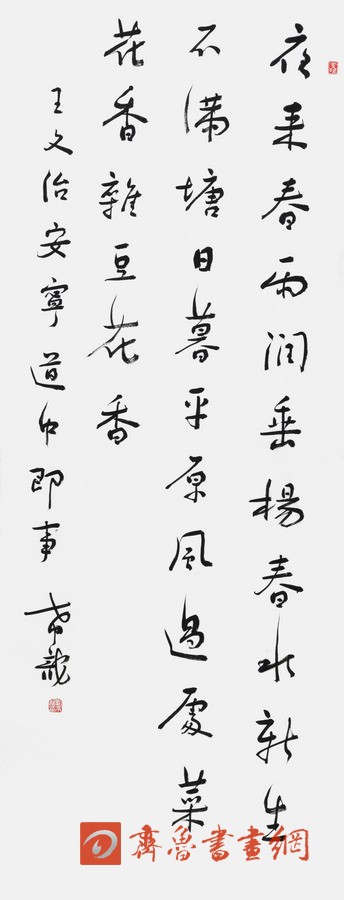 夜来春雨润垂楊春水新生
不满塘日暮平原風過處菜
花香雜豆花香
王文治安寧道中即事
齊魯書畫網